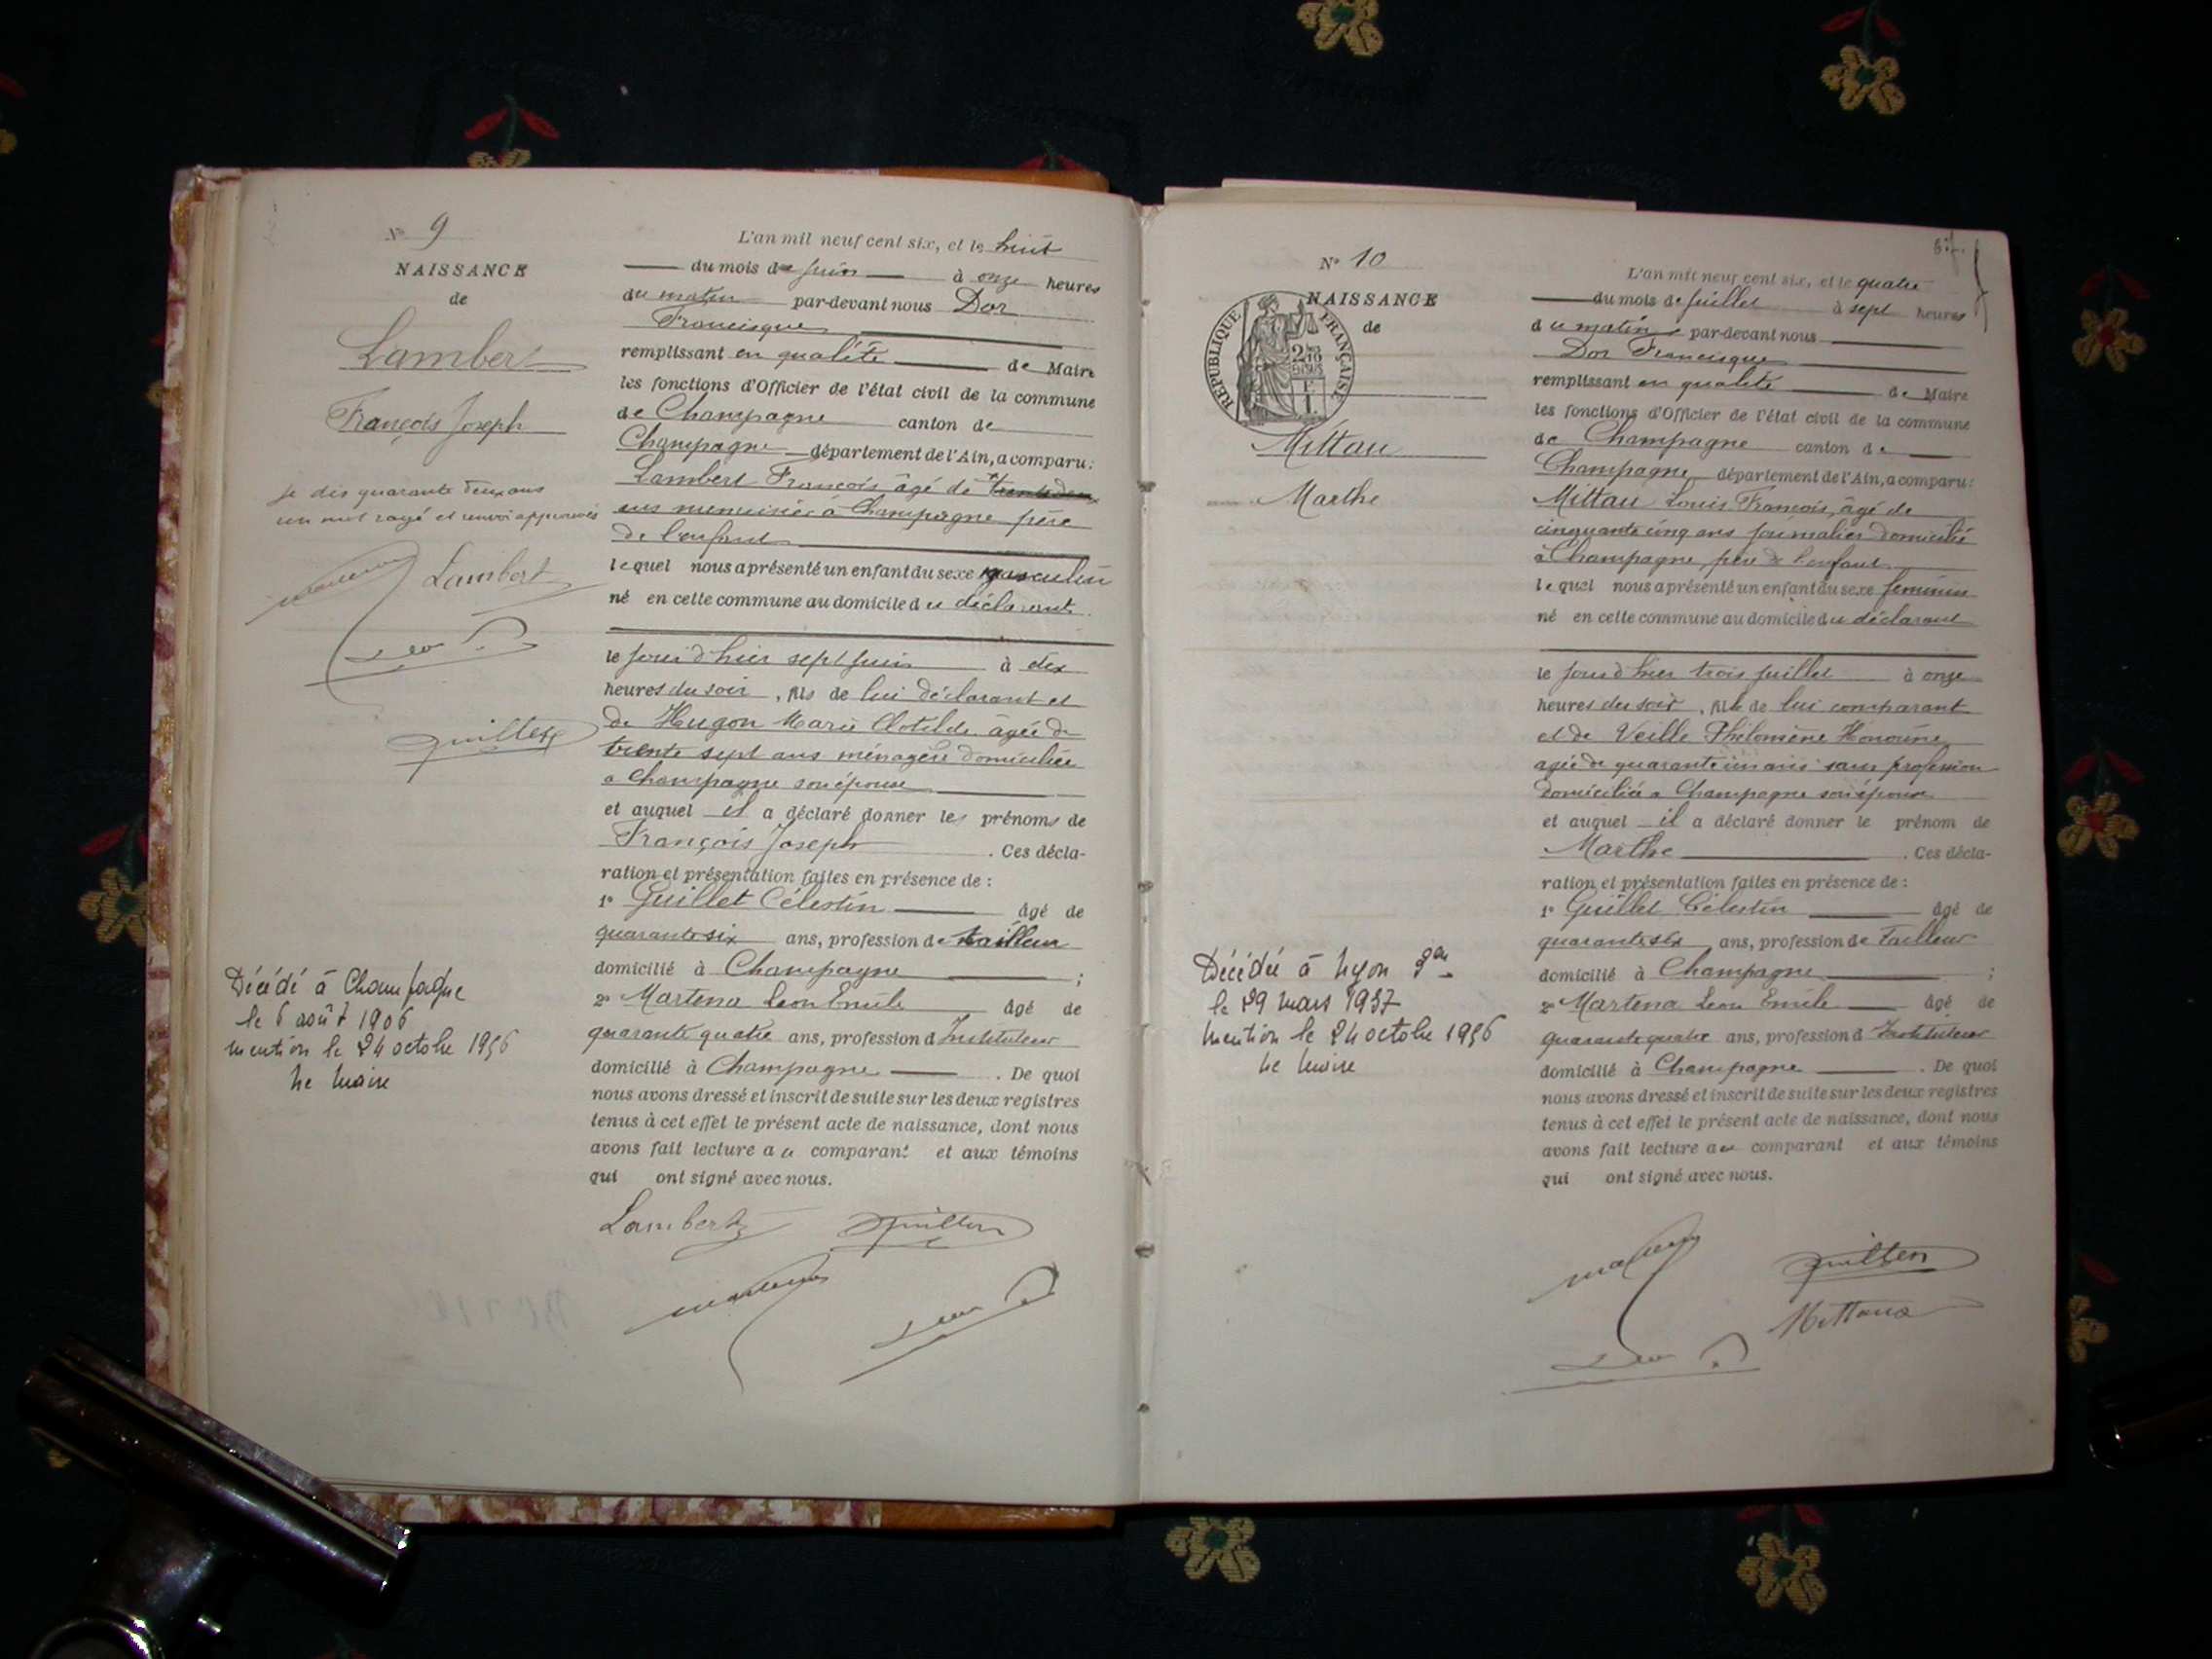 N° 9
NAISSANCE
de
Lambert
François Joseph
je dis quarante deux ans
un mot rayé et renvoi approuvés
Lambert
Décédé à Champagne
le 6 août 1906
mention le 24 octobre 1956
Le Maire
L'an mil neuf cent six, et le huit
du mois de juin à onze heures
du matin par-devant nous Dor
Francisque
remplissant en qualité de Maire
les fonctions d'Officier de l'état civil de la commune
de Champagne canton de
Champagne département de l'Ain, a comparu:
Lambert François âgé de trente deux
ans menuisier à Champagne père
de l'enfant
lequel nous a présenté un enfant du sexe masculin
né en cette commune au domicile du déclarant
le jour d'hier sept juin à dix
heures du soir, fils de lui déclarant et
de Hugon Marie Clotilde âgée de
trente sept ans ménagère domiciliée
à Champagne son épouse
et auquel il a déclaré donner les prénoms de
François Joseph. Ces décla-
ration et présentation faites en présence de:
1° Guillet Célestin âgé de
quarante six ans, profession de tailleur
domicilié à Champagne;
2° Martena Leon Emile âgé de
quarante quatre ans, profession d'Instituteur
domicilié à Champagne. De quoi
nous avons dressé et inscrit de suite sur les deux registres
tenus à cet effet le présent acte de naissance, dont nous
avons fait lecture au comparant et aux témoins
qui ont signé avec nous.
Lambert
N° 10
NAISSANCE
de
RÉPUBLIQUE FRANÇAISE
Mittau
Marthe
Décédée à Lyon
le 29 mars 1937
Mention le 24 octobre 1956
Le Maire
L'an mil neuf cent six, et le quatre
du mois de juillet à sept heures
du matin par-devant nous
Dor Francisque
remplissant en qualité de Maire
les fonctions d'Officier de l'état civil de la commune
de Champagne canton de
Champagne département de l'Ain, a comparu:
Mittau Louis François, âgé de
cinquante cinq ans journalier domicilié
à Champagne, père de l'enfant
lequel nous a présenté un enfant du sexe féminin
né en cette commune au domicile du déclarant
le jour d'hier trois juillet à onze
heures du soir, fille de lui comparant
et de Veille Philomène Honorine
agée de quarante un ans sans profession
domiciliée à Champagne son épouse
et auquel il a déclaré donner le prénom de
Marthe. Ces décla-
ration et présentation faites en présence de:
1° Guillet Célestin âgé de
quarante six ans, profession de Tailleur
domicilié à Champagne;
2° Martena Leon Emile âgé de
quarante quatre ans, profession d'Instituteur
domicilié à Champagne. De quoi
nous avons dressé et inscrit de suite sur les deux registres
tenus à cet effet le présent acte de naissance, dont nous
avons fait lecture au comparant et aux témoins
qui ont signé avec nous.